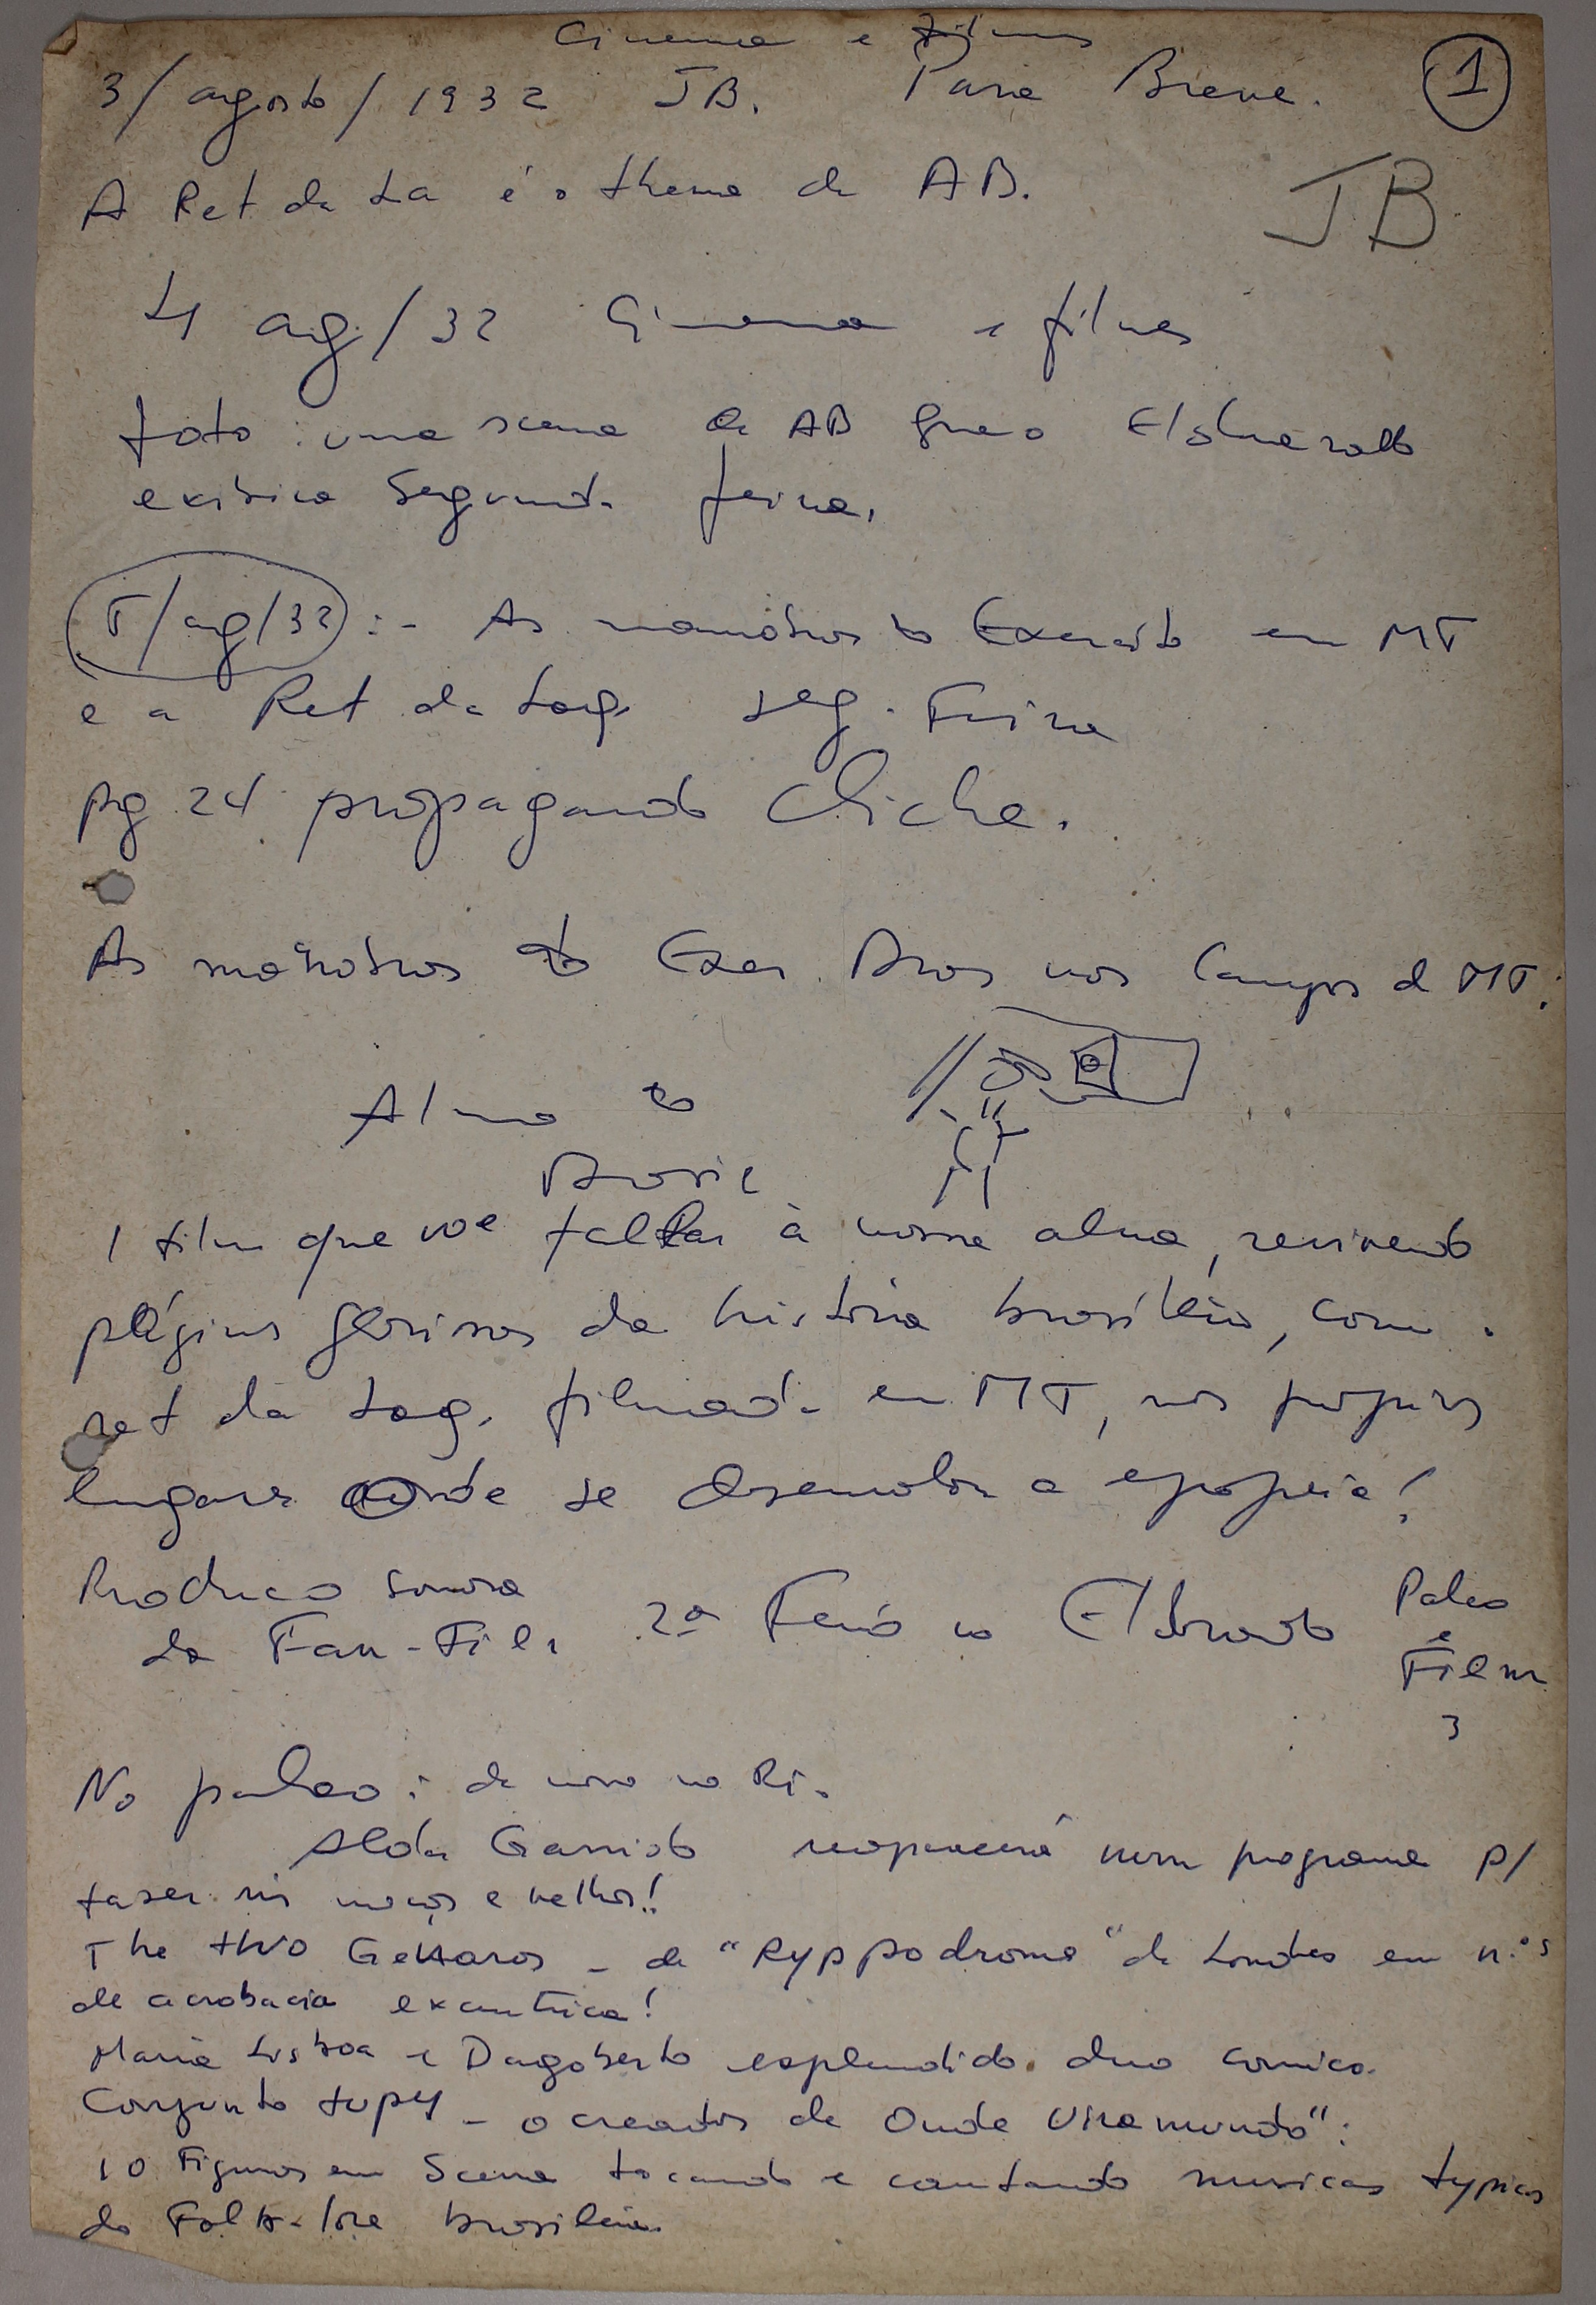 Cinema e Films
3/agosto/1932 JB. Para Breve. 1
A Ret da La é o thema de AB.
JB
4 ag/32 Cinema e filmes
foto: uma scena de AB que o Eldorado
exibira Segunda feira.
5/ag/32 :- As manobras do Exercito em MT
e a Ret da Lag. seg. Feira
pg 24 propaganda Cliche.
As manobras do Exer. Bras nos Campos de MT.
Alma do
Brasil
1 film que vae fallar à nossa alma, revivendo
páginas gloriosas da história brasileira, como a
ret da Lag. filmada em MT, nos proprios
lugares onde se desenvolveu a epopeia!
Producao sonora
da Fan-Film 2ª Feira no Eldorado Palco
e
Film
3
No palco: de novo no Rio
Alda Garrido reaparecerá num programa p/
fazer rir moços e velhos!!
The two Gennaros - de "Ryppodromo" de Londres em n.ºs
de acrobacia excentrica!
Maria Lisboa e Dagoberto esplendido duo comico.
Conjunto tupy - o creador de Onde Vira mundo":
10 Figuras em Scena tocando e cantando musicas typicas
do Folk-lore brasileiro